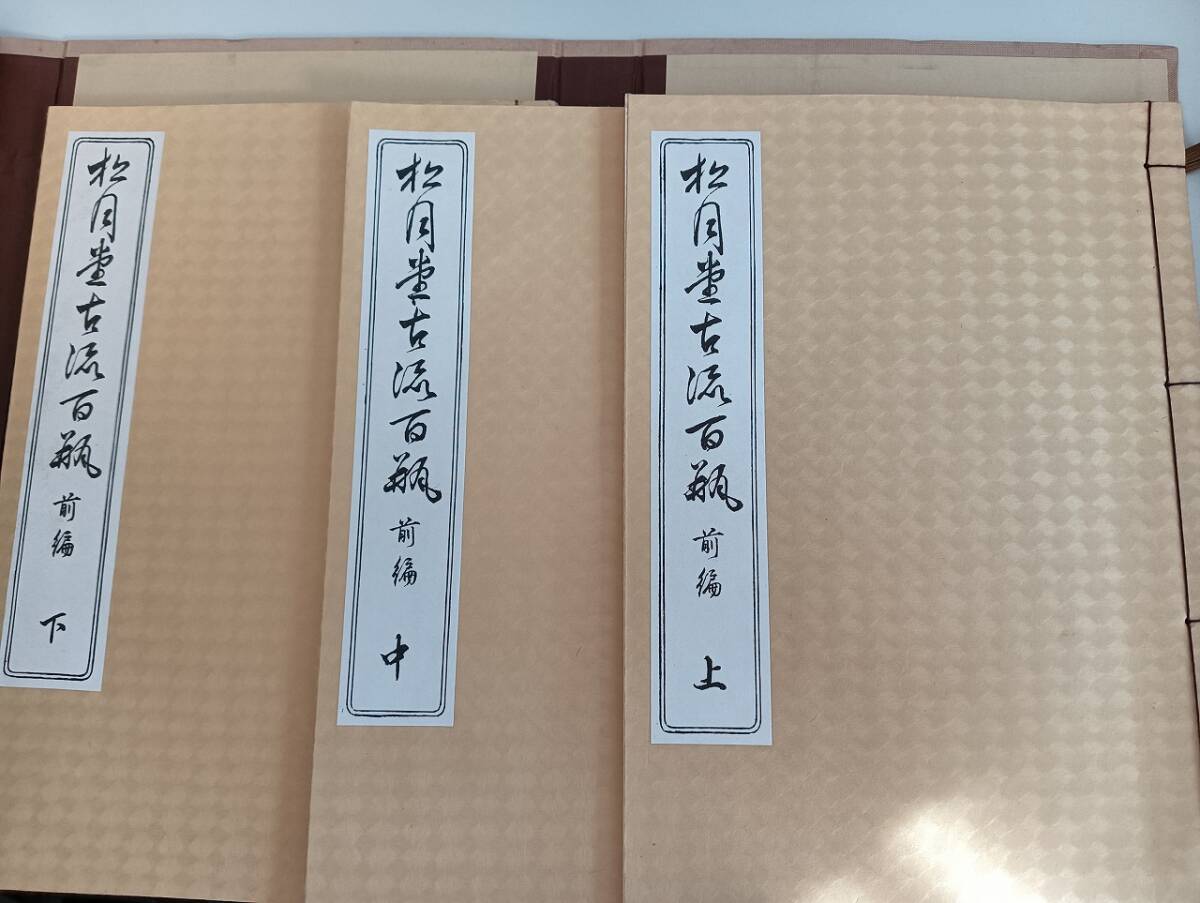 松月堂古流百瓶 前編 上
松月堂古流百瓶 前編 中
松月堂古流百瓶 前編 下